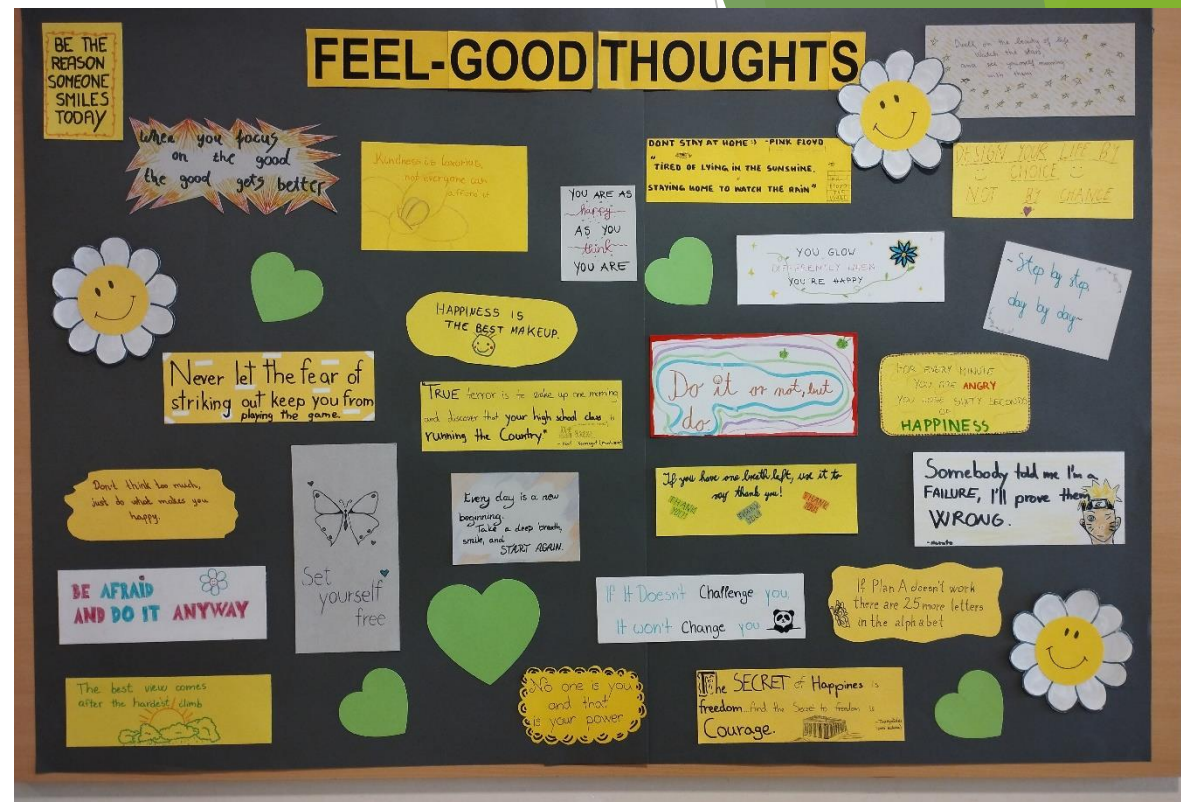 BE THE
REASON
SOMEONE
SMILES
TODAY
FEEL-GOOD THOUGHTS
Dwell on the beauty of life
watch the stars
and see yourself running
with them
When you focus
on the good
the good gets better
Kindness is
not everyone can
afford it
DONT STAY AT HOME :) -PINK FLOYD
"TIRED OF LYING IN THE SUNSHINE,
STAYING HOME TO WATCH THE RAIN"
DESIGN YOUR LIFE BY
CHOICE
NOT BY CHANCE
YOU ARE AS
happy
AS YOU
think
YOU ARE
YOU GLOW
DIFFERENTLY WHEN
YOU'RE HAPPY
- Step by step
day by day-
HAPPINESS IS
THE BEST MAKEUP.
Never let the fear of
striking out keep you from
playing the game.
"TRUE terror is to wake up one morning
and discover that your high school class is
running the Country."
Do it or not, but
do
FOR EVERY MINUTE
YOU ARE ANGRY
YOU LOSE SIXTY SECONDS
OF
HAPPINESS
Don't think too much,
just do what makes you
happy.
Set
yourself
free
Every day is a new
beginning.
Take a deep breath,
smile, and
START AGAIN.
If you have one breath left, use it to
say thank you!
THANK YOU!
THANK YOU!
THANK YOU!
Somebody told me I'm a
FAILURE, I'll prove them
WRONG.
-Naruto
BE AFRAID
AND DO IT ANYWAY
If It Doesn't Challenge you,
It won't Change you
If Plan A doesn't work
there are 25 more letters
in the alphabet
The best view comes
after the hardest climb
No one is you
and that
is your power
The SECRET of Happines is
freedom...And the Secret to freedom is
Courage.